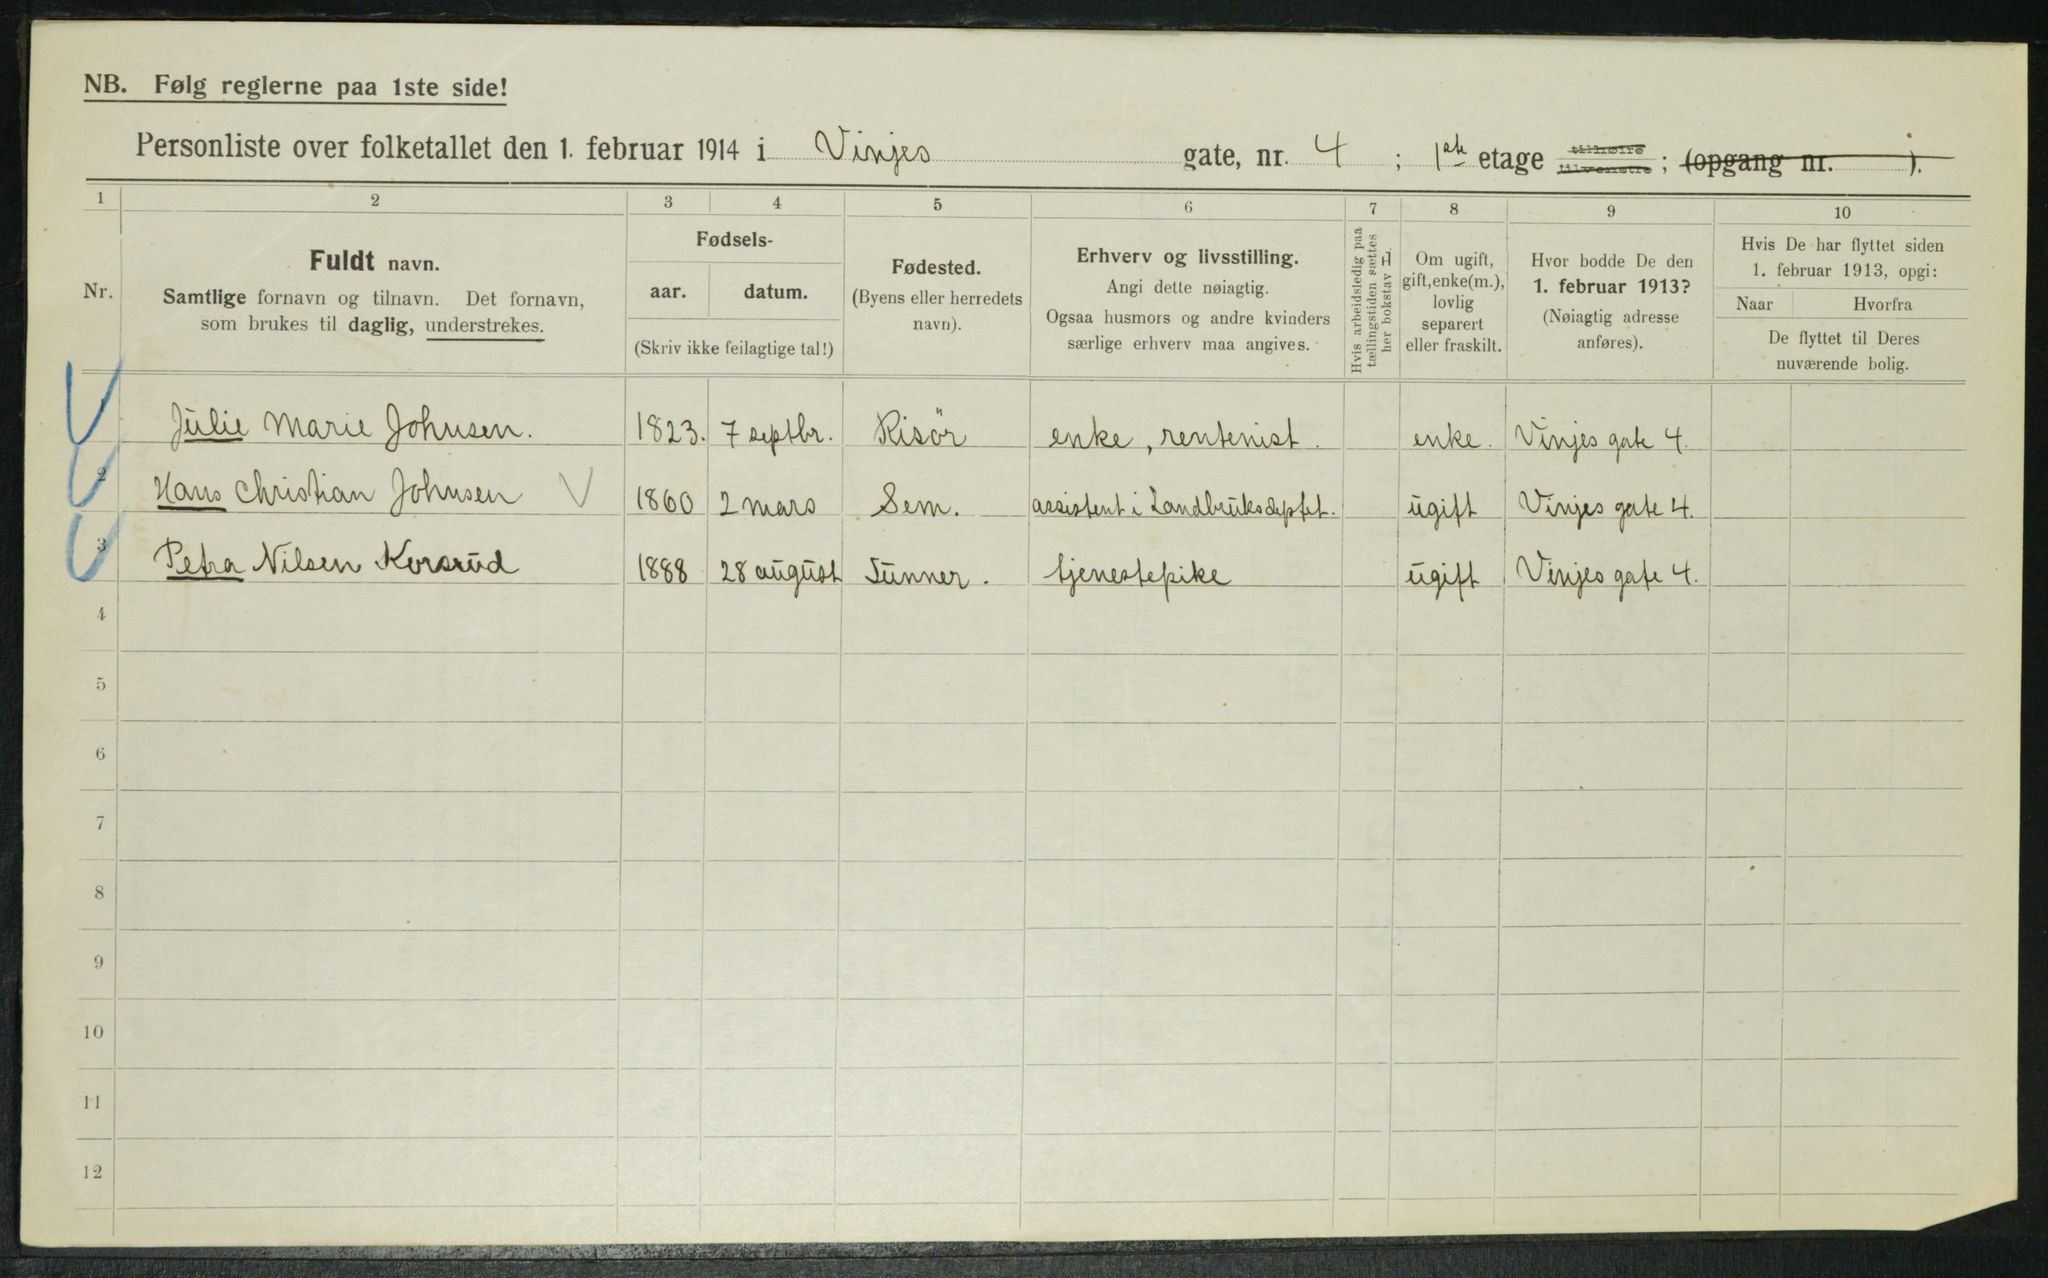 NB. Følg reglerne paa 1ste side!
Personliste over folketallet den 1. februar 1914 i Vinjes gate, nr. 4 ; 1ste etage tilhøire tilvenstre ; (opgang nr. ).
1 2 3 4 5 6 7 8 9 10
Nr.
Fuldt navn.
Samtlige fornavn og tilnavn. Det fornavn,
som brukes til daglig, understrekes.
Fødsels-
aar. datum.
(Skriv ikke feilagtige tal!)
Fødested.
(Byens eller herredets
navn).
Erhverv og livsstilling.
Angi dette nøiagtig.
Ogsaa husmors og andre kvinders
særlige erhverv maa angives.
Hvis arbeidsledig paa
tællingstiden sættes
her bokstav L.
Om ugift,
gift, enke(m.),
lovlig
separert
eller fraskilt.
Hvor bodde De den
1. februar 1913?
(Nøiagtig adresse
anføres).
Hvis De har flyttet siden
1. februar 1913, opgi:
Naar Hvorfra
De flyttet til Deres
nuværende bolig.
1 Julie Marie Johnsen. 1823. 7 septbr. Risör enke, rentenist. enke. Vinjes gate 4.
2 Hans Christian Johnsen V 1860 2 mars Sem. assistent i Landbruksdeptet. ugift Vinjes gate 4.
3 Petra Nilsen Korsrud 1888 28 august Junner. tjenestepike ugift Vinjes gate 4.
4
5
6
7
8
9
10
11
12